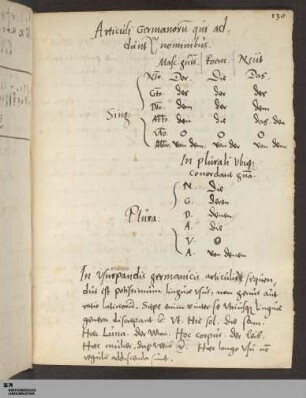 130
Articuli Germanorum qui ad-
duntur nominibus.
Masc. gen. Foem. Neut.
No. Der Die Das.
Ge. der der der
Da. dem der dem
Sing. Acc. den die das, den
Vo. O O O
Abl. von dem, von der von dem
In plurali ubiq
concordant gña.
N. Die
G. deren
D. denen
Plura. A. die
V. O
A. von denen
In usurpandis germanicis articulis sequen-
dus est potissimum linguae usus, non genus aut
ratio latinorum. Sepe enim inter se utriusq linguae
genera discrepant &c. Vt. Hic sol. die Sonn.
Haec Luna. der Mon. Hoc corpus. der leib.
Haec mulier, das weib &c. Haec longo usu no
regulis addiscenda sunt.